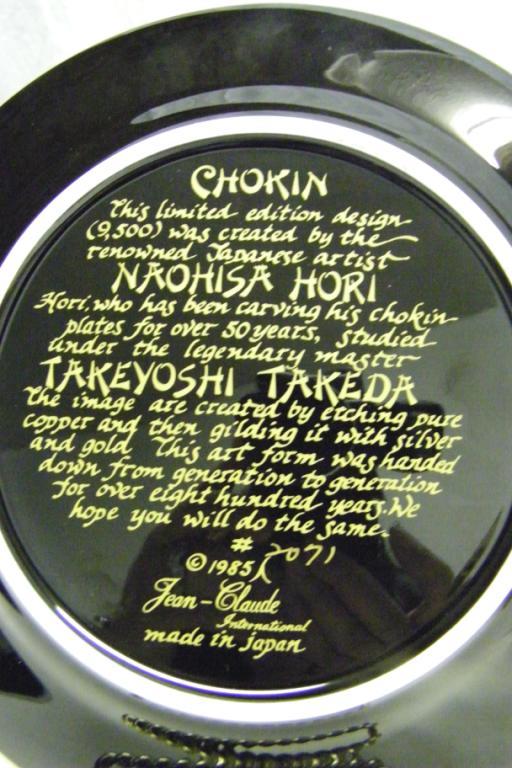 CHOKIN
This limited edition design
(9,500) was created by the
renowned Japanese artist
NAOHISA HORI
Hori, who has been carving his chokin
plates for over 50 years, studied
under the legendary master
TAKEYOSHI TAKEDA
The image are created by etching pure
copper and then gilding it with silver
and gold. This art form was handed
down from generation to generation
for over eight hundred years. We
hope you will do the same.
# 2071
© 1985
Jean-Claude
International
made in japan